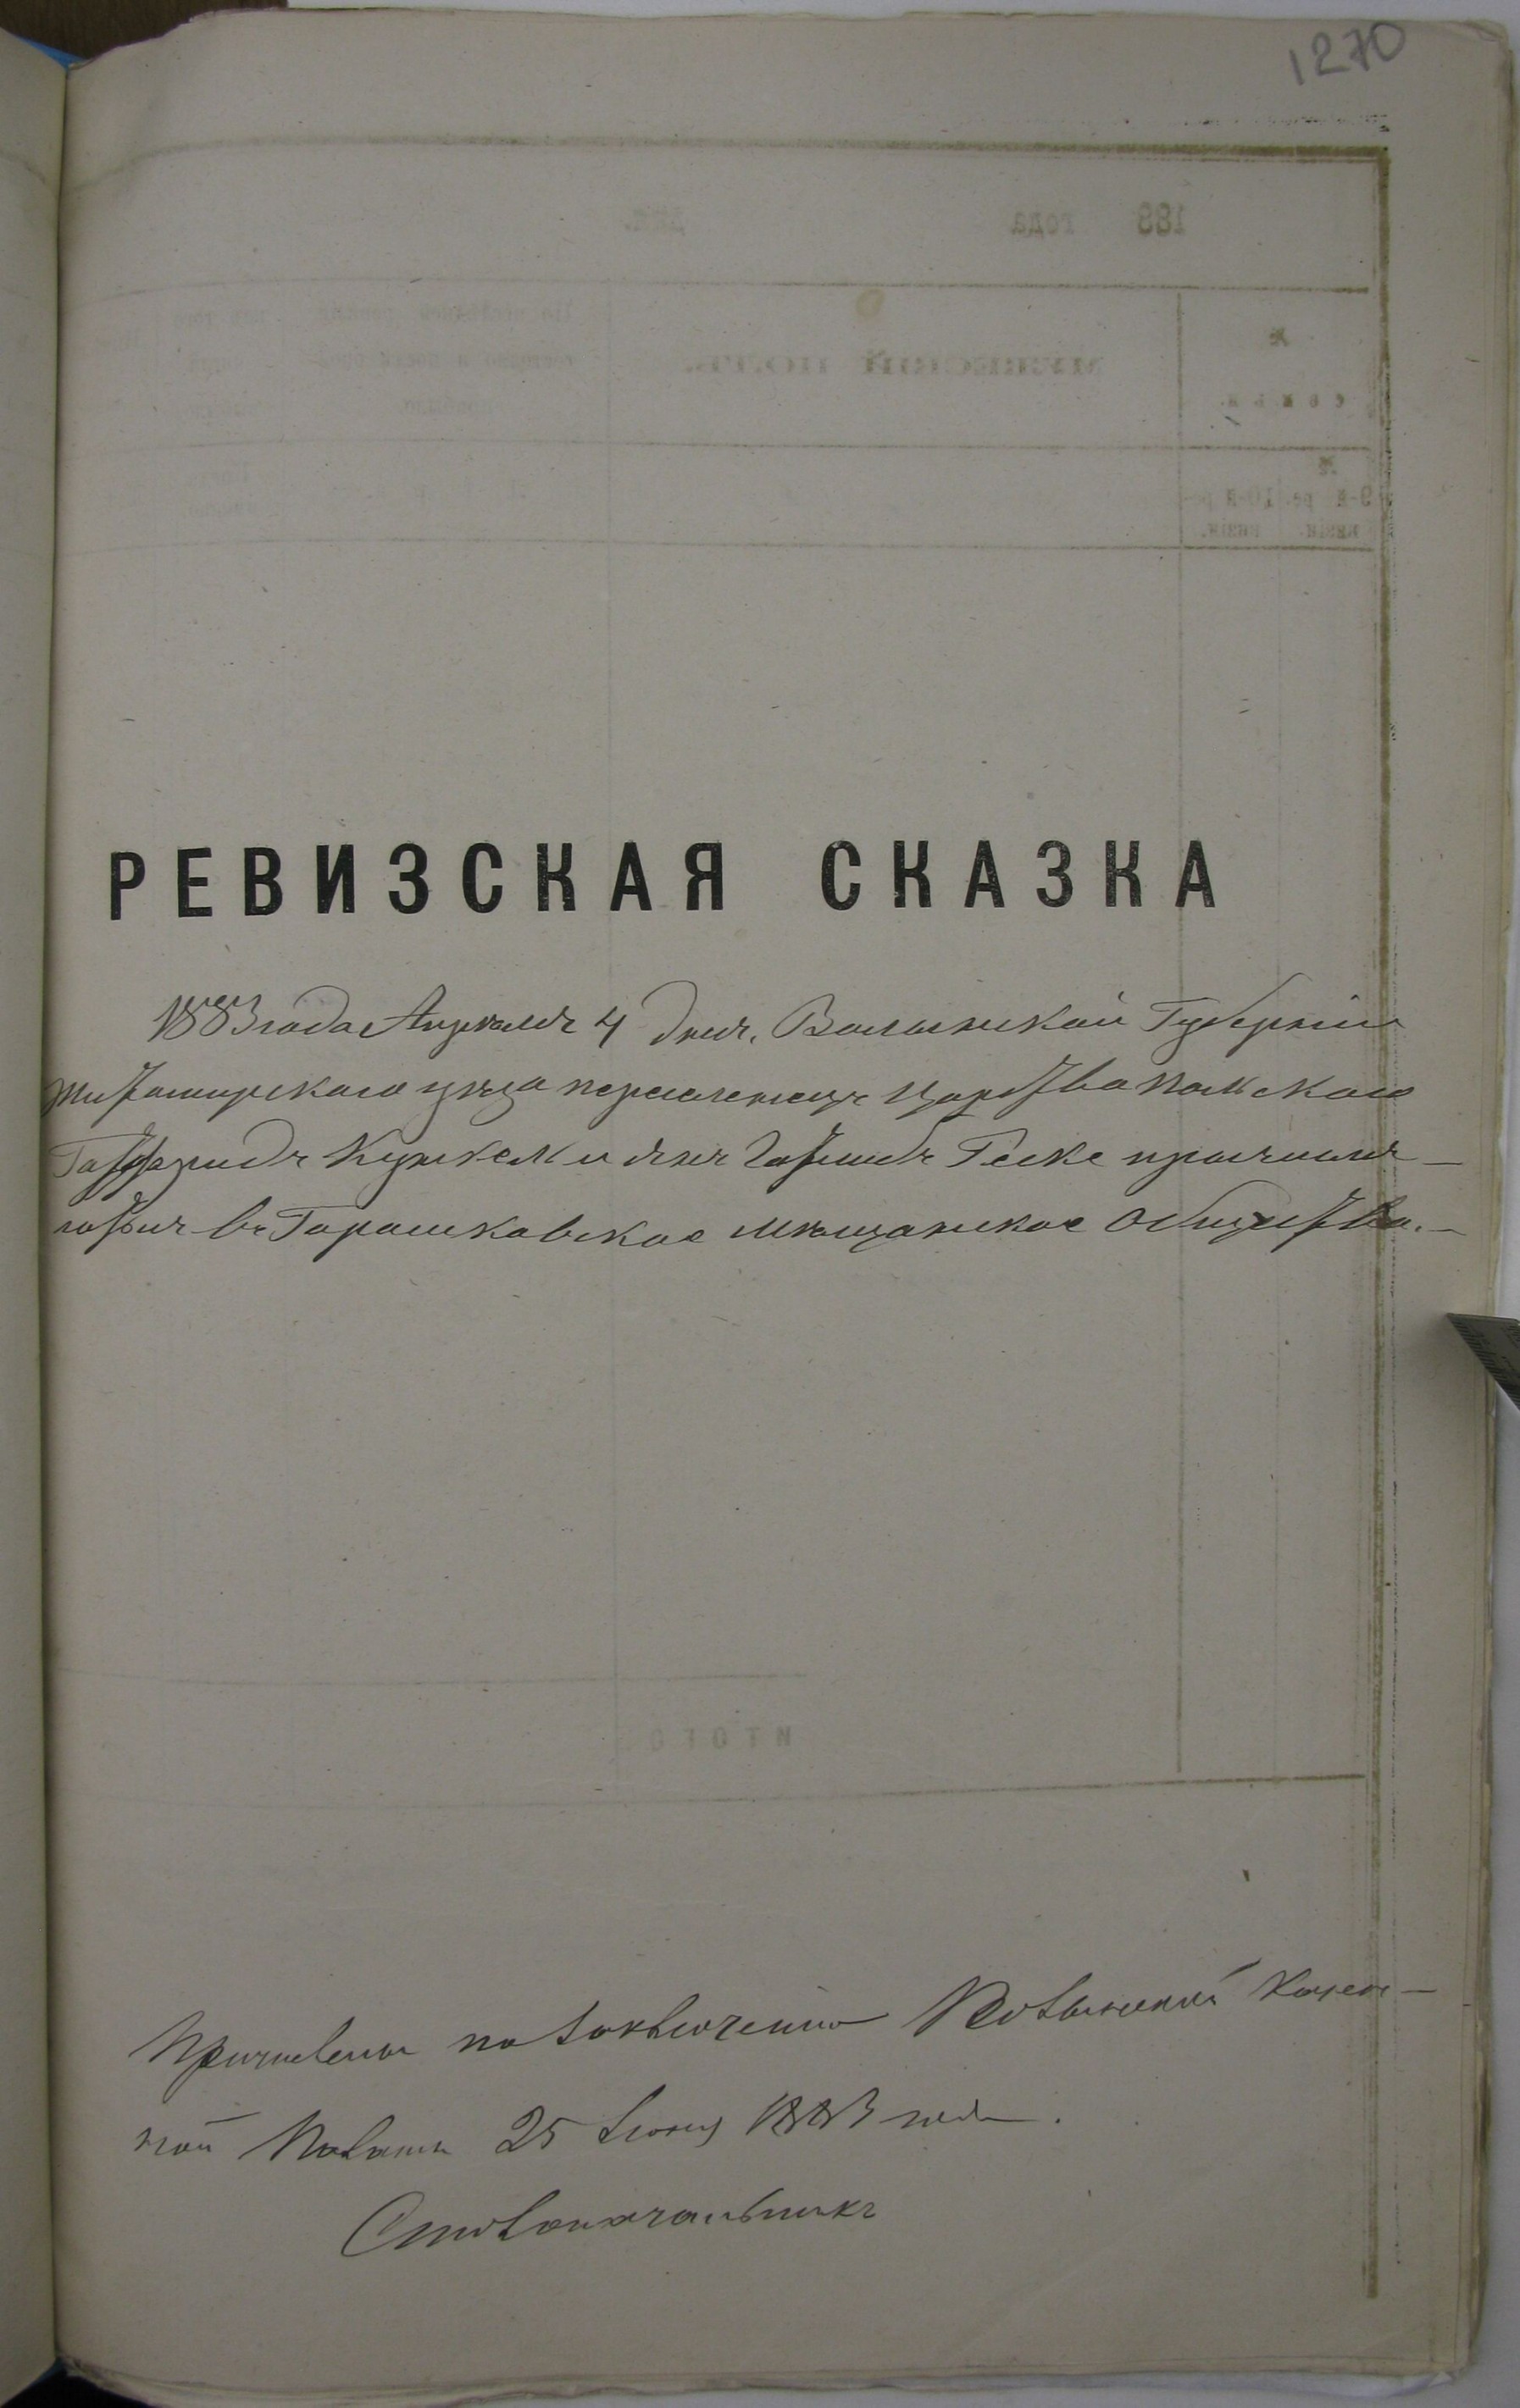 1270
РЕВИЗСКАЯ СКАЗКА
1883 года Апреля 4 дня, Волынской Губерніи
Житомирского уезда переселенецъ Царства Польского
Готфридъ Кункель и зять Готлибъ Геске причисля-
ются въ Горошковское мѣщанское Общество.—
Причислены по заключенію Волынской Казен-
ной Палаты 25 Іюня 1883 года.
Столоначальникъ